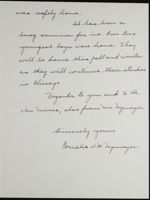 was safely home.
It has been a
busy summer for me. Our two
youngest boys were home. They
will be home this fall and winter
as they will continue their studies
in Chicago.
Regards to you and to the
also from Mr. Nymeyer.
Sincerely yours
Cornelia V.H. Nymeyer